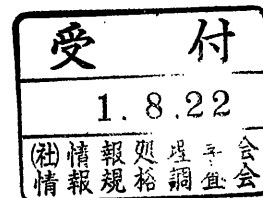 受付
1. 8. 22
(社)情報処理学会
情報規格調査会